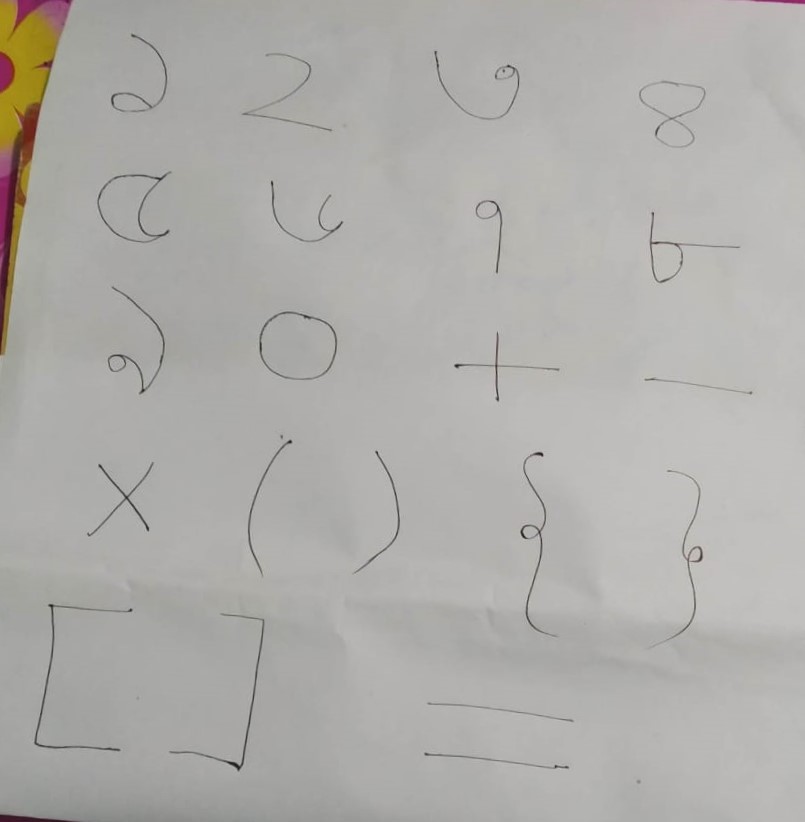 ১ ২ ৩ ৪
৫ ৬ ৭ ৮
৯ ০ + -
× ( ) { }
[ ] =